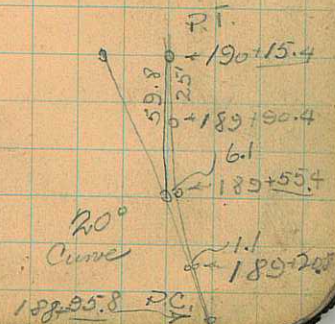 P.T.
190+15.4
59.8
25'
189+90.4
6.1
189+55.4
20°
Curve
1.1
189+20.8
188+95.8 P.C.